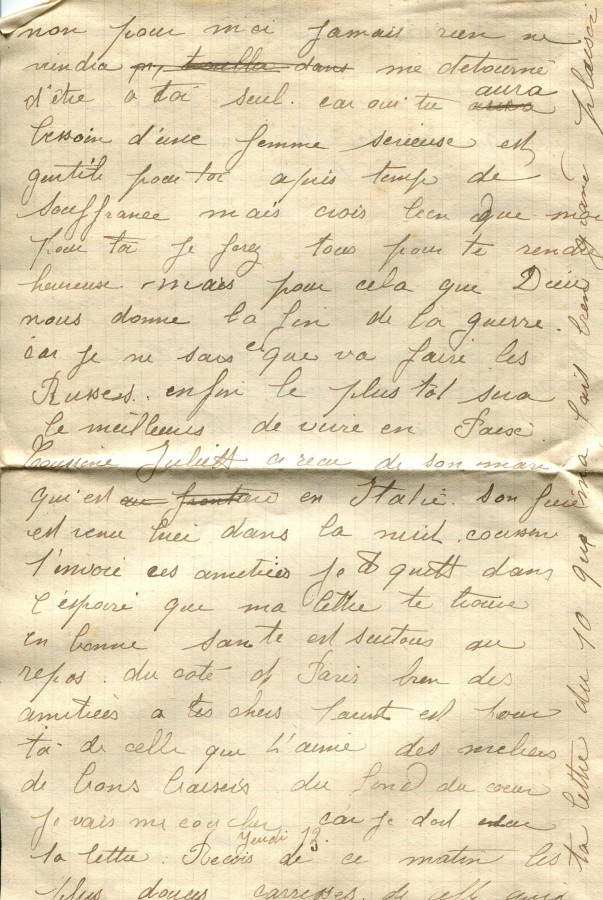 non pour moi jamais rien ne
viendra me detourné
d'être a toi seul. car oui tu aura
bessoin d'une femme serieuse est
gentile pour toi apres temp de
souffrance mais crois bien que moi
pour toi je ferez tous pour te rendre
heureuse mais pour cela que Dieu
nous donne la fin de la guerre.
car je ne sais ce que va faire les
Russes. enfin le plus tôt sera
le meilleurs de vivre en Paix
Coussine Juliett a recu de son mari
qui est en Italie. son frère
est venu hier dans la nuit. coussin
t'envoie ces amitiées je te quitt dans
l'espoire que ma lettre te trouve
en bonne sante est surtous au
repos. du coté de Paris bien des
amitiées a tes chers parent est pour
toi de celle que t'aime des milliers
de bons baisers du fond du coeur
je vais me coucher car je doit
ta lettre. Jeudi 12. Recois de ce matin les
plus douces carresses de celle qui
ta lettre du 10 que ma fais bien grand plaisir